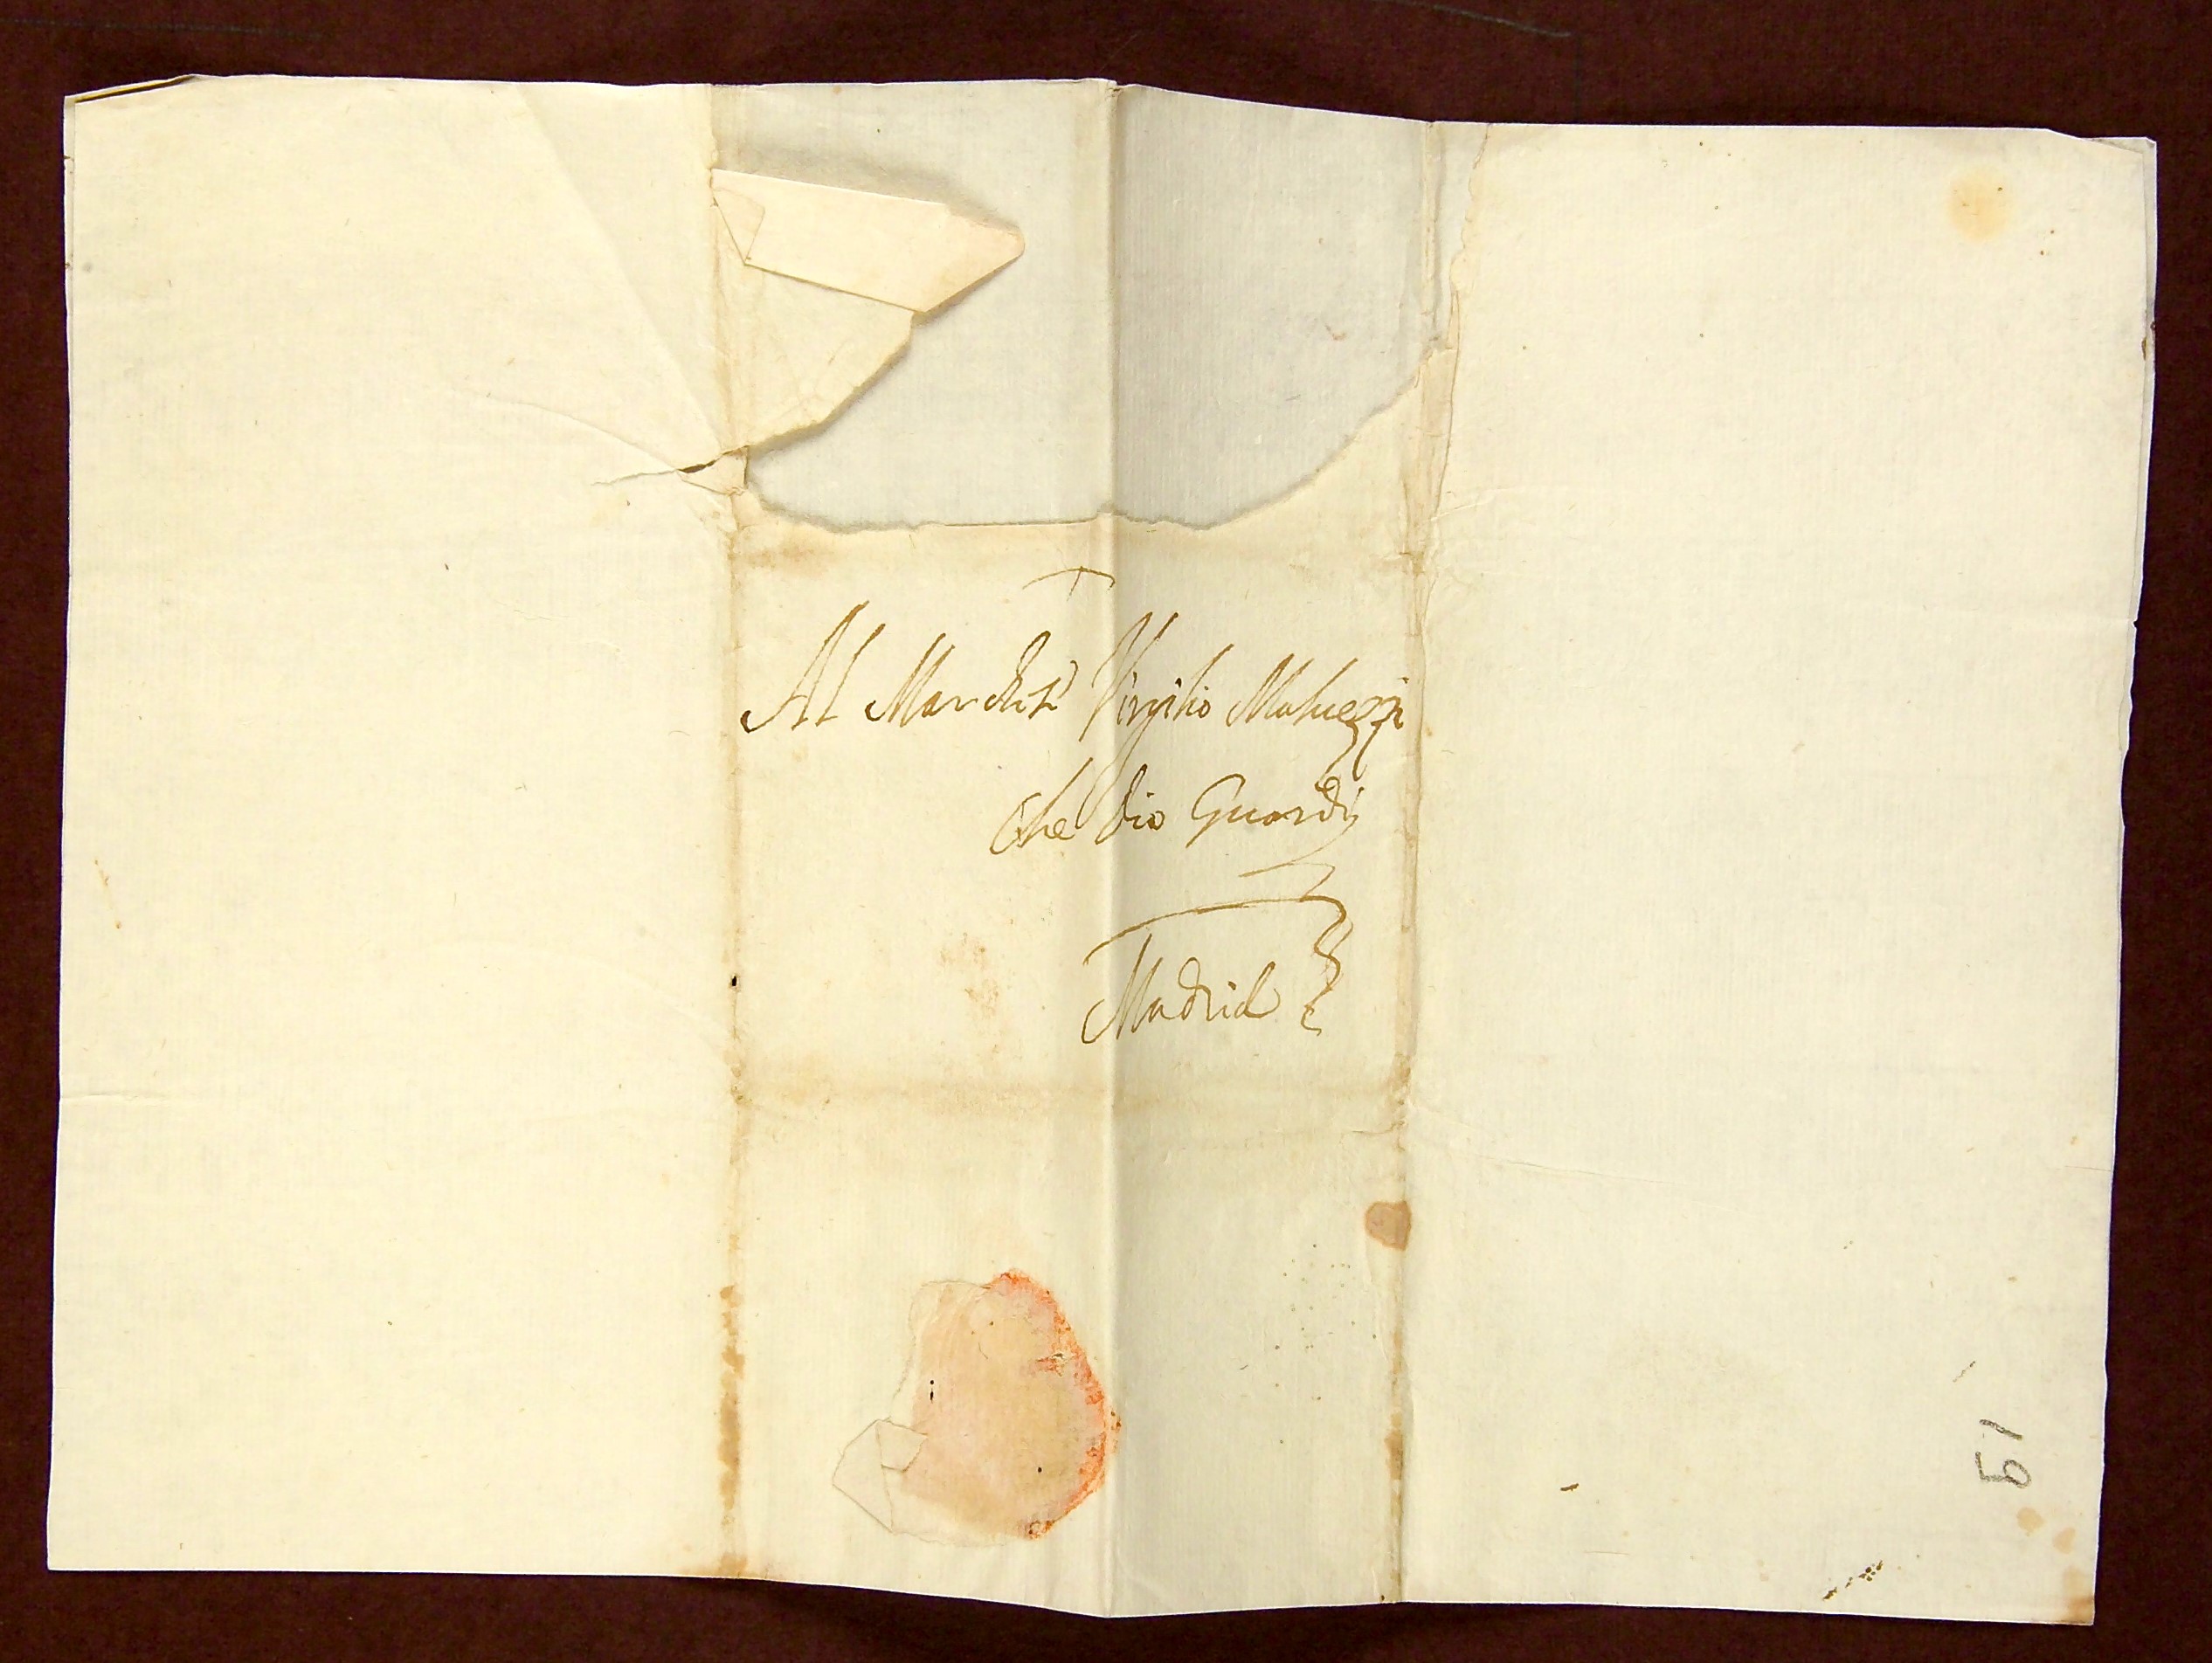 Al Marchese Virgilio Maluezzi
Che Dio Guardi
Madrid
51